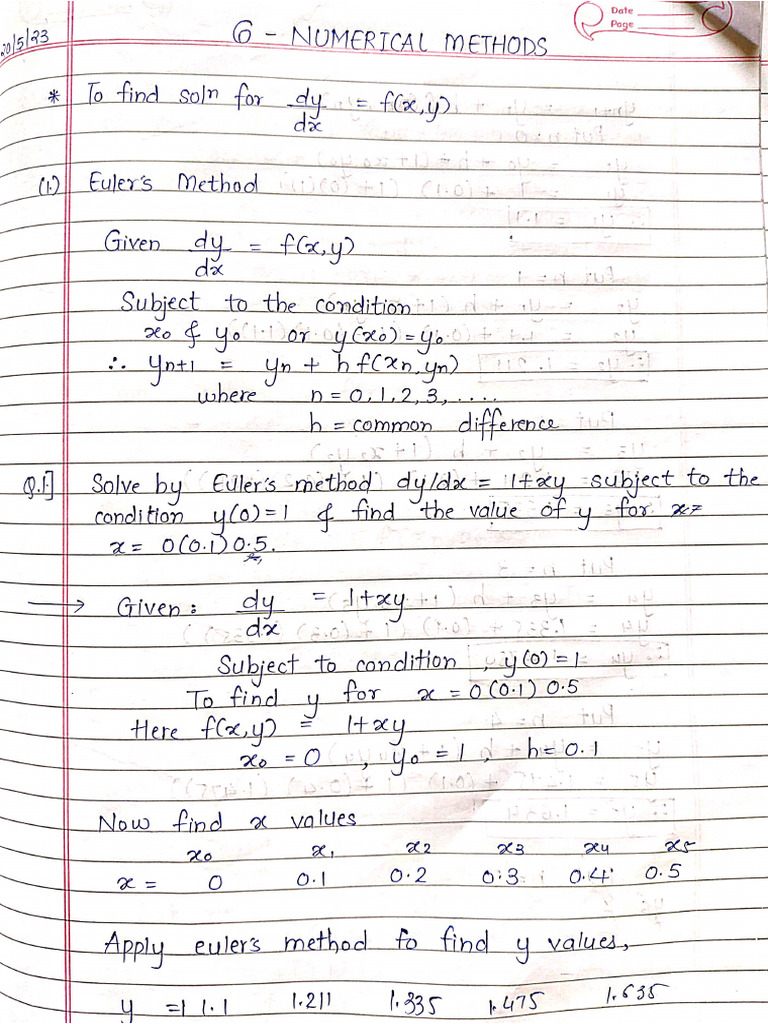 Date
Page
20/5/23
6 - NUMERICAL METHODS
* To find soln for dy/dx = f(x,y)
(1.) Euler's Method
Given dy/dx = f(x,y)
Subject to the condition
x0 & y0 or y(x0) = y0
∴ yn+1 = yn + h f(xn, yn)
where n = 0, 1, 2, 3, ....
h = common difference
Q.1] Solve by Euler's method dy/dx = 1+xy subject to the
condition y(0)=1 & find the value of y for x=
x = 0(0.1)0.5.
→ Given: dy/dx = 1+xy
Subject to condition, y(0)=1
To find y for x = 0(0.1)0.5
Here f(x,y) = 1+xy
x0 = 0, y0 = 1, h = 0.1
Now find x values
x0 x1 x2 x3 x4 x5
x = 0 0.1 0.2 0.3 0.4 0.5
Apply euler's method to find y values,
y = 1 1.1 1.211 1.335 1.475 1.635